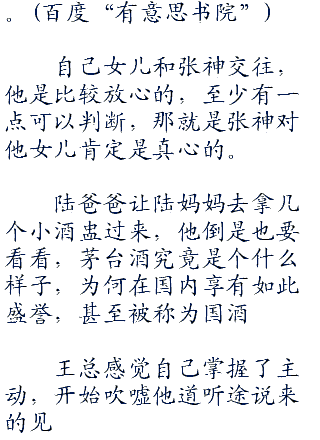 。(百度“有意思书院”)
自己女儿和张神交往，
他是比较放心的，至少有一
点可以判断，那就是张神对
他女儿肯定是真心的。
陆爸爸让陆妈妈去拿几
个小酒盅过来，他倒是也要
看看，茅台酒究竟是个什么
样子，为何在国内享有如此
盛誉，甚至被称为国酒
王总感觉自己掌握了主
动，开始吹嘘他道听途说来
的见